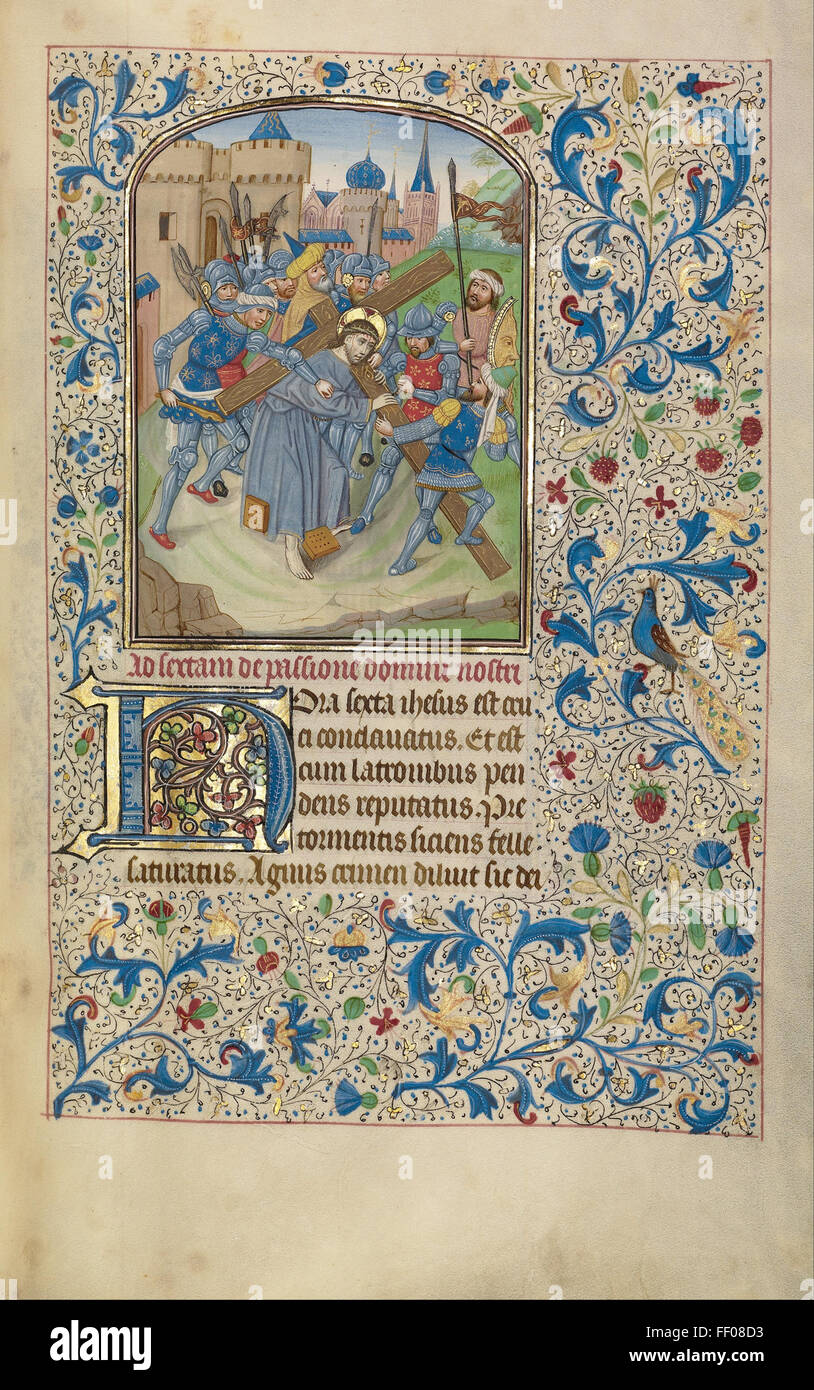 Ad sextam de passione domini nostri
Hora sexta ihesus est cru
ci conclavatus. Et est
cum latronibus pen
dens reputatus. Pre
tormentis siciens felle
saturatus. Agnus crimen diluit sic dei
alamy
Image ID: FF08D3
www.alamy.com